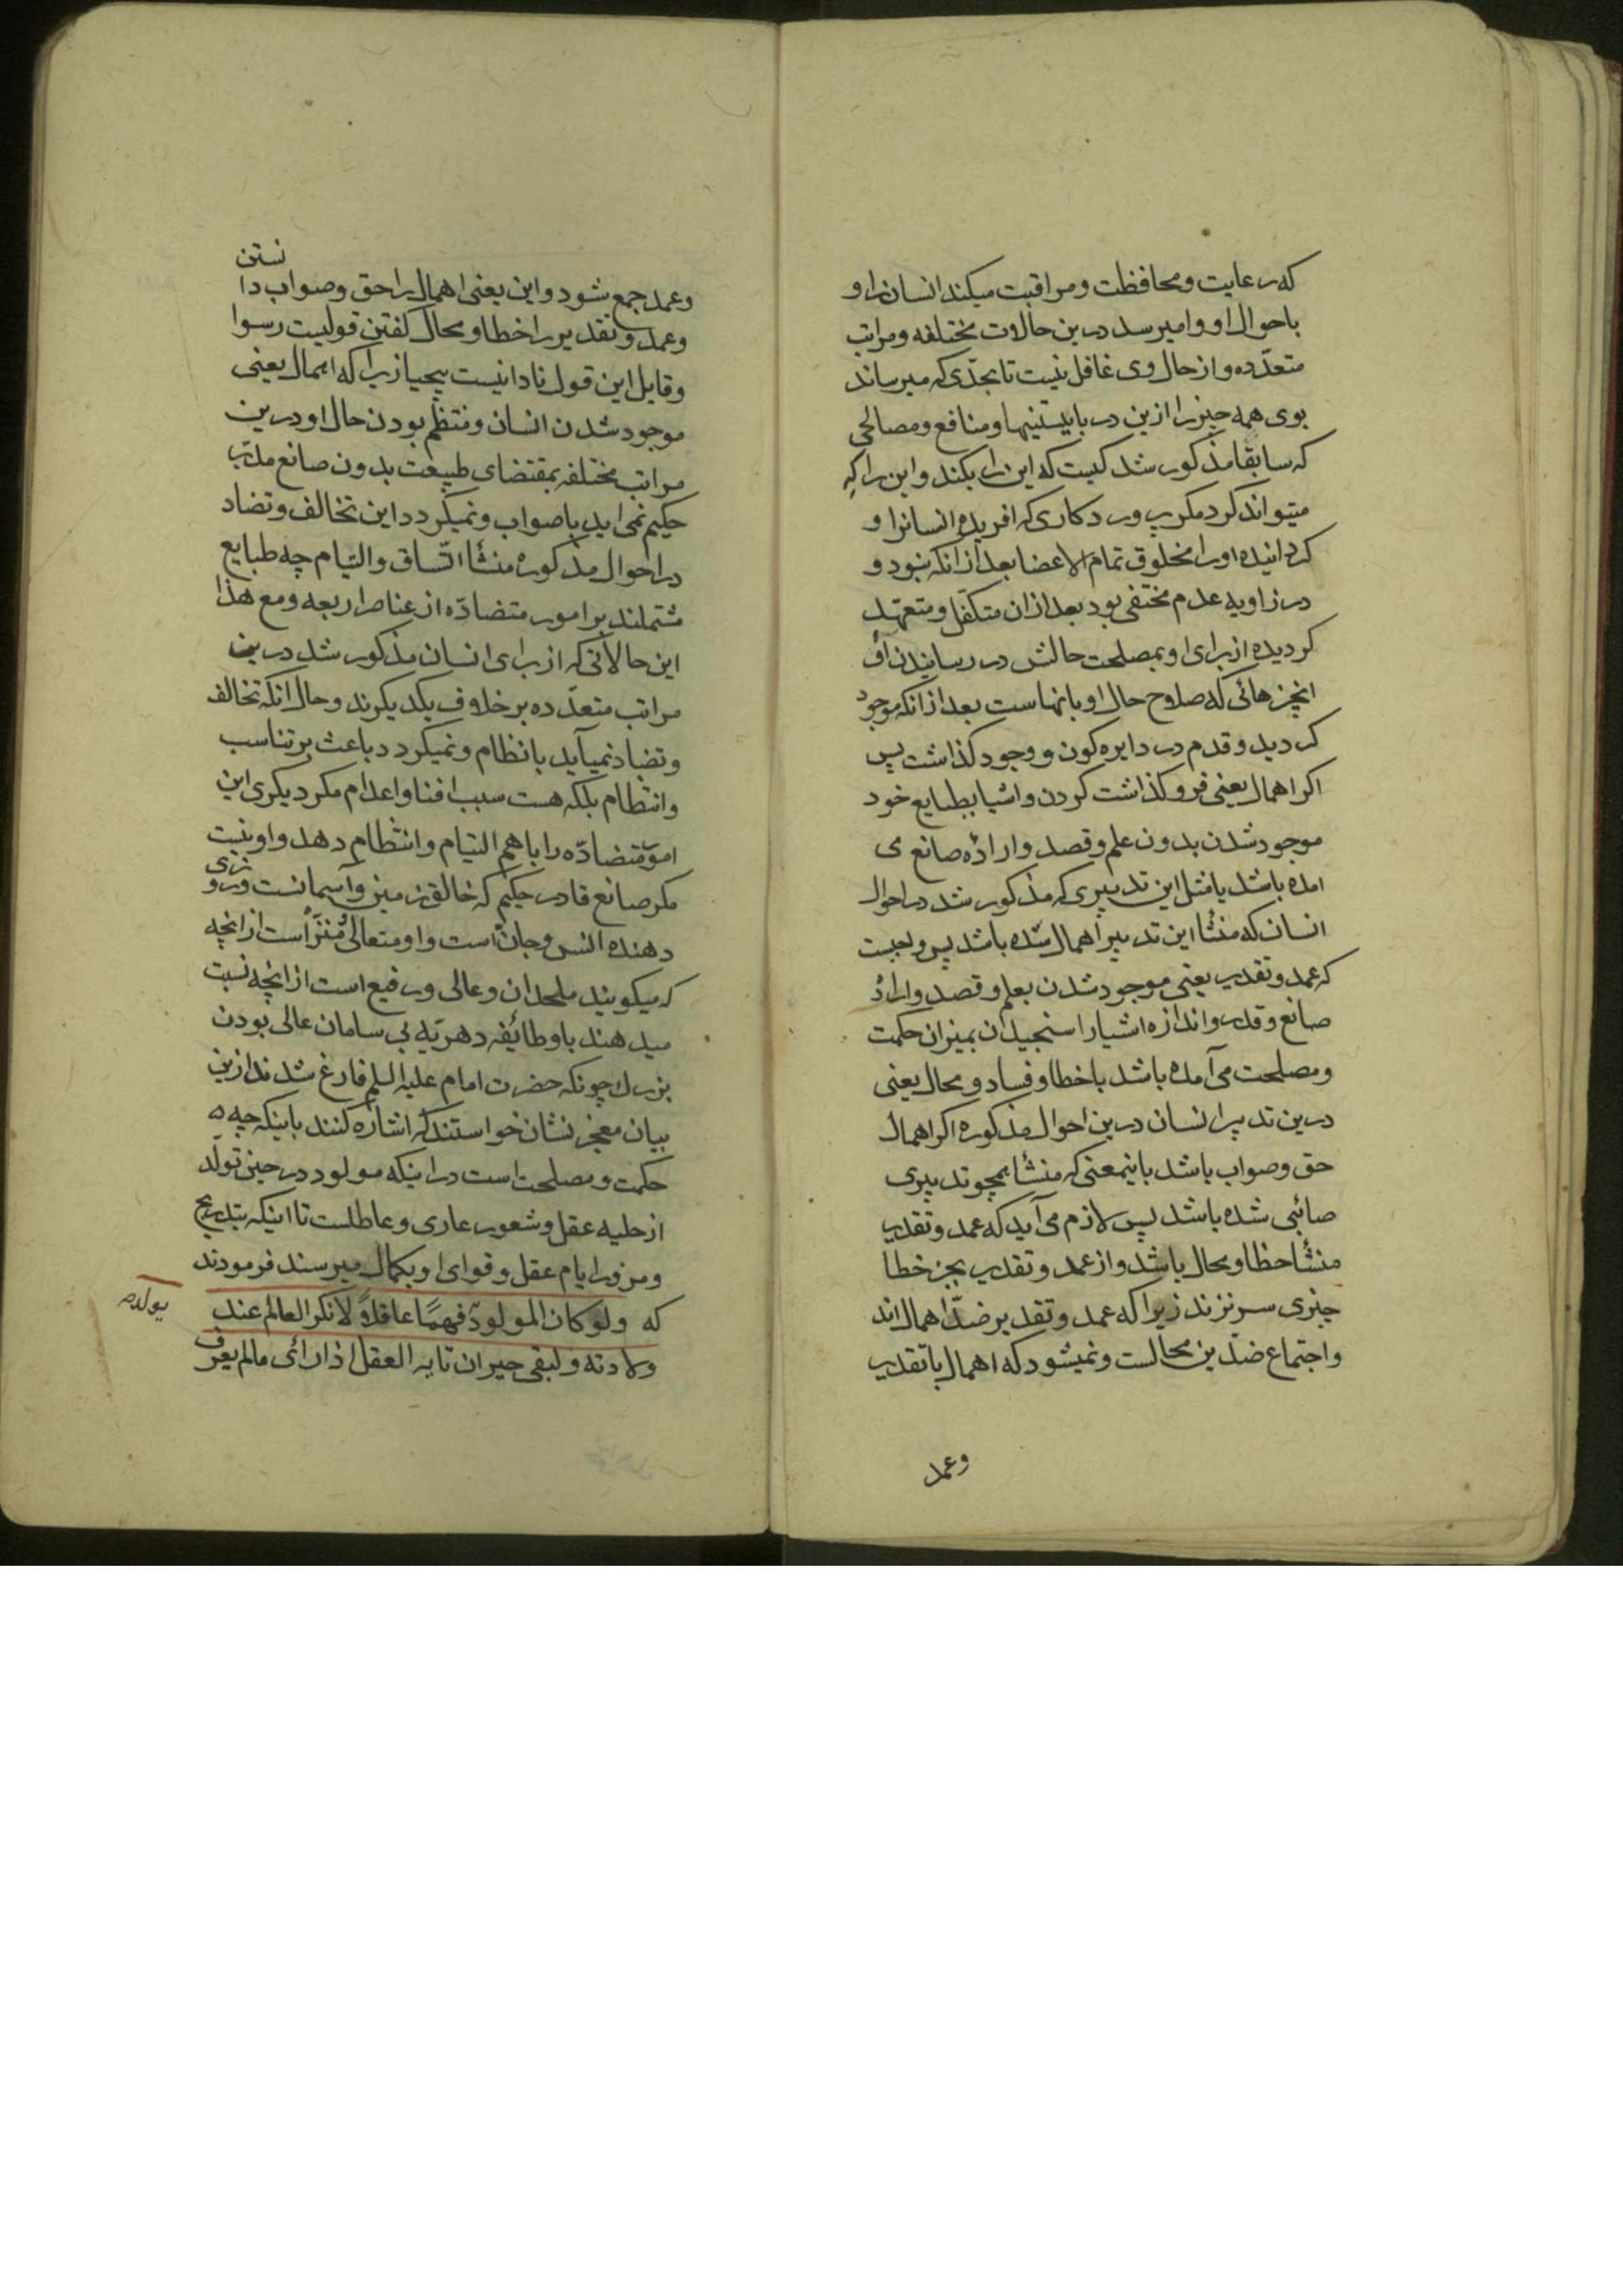 که رعایت و محافظت و مراقبت میکند انسان را و
باحوال او وامیرسد درین حالات مختلفه و مراتب
متعدّده و از حال وی غافل نیست تا بحدّی که میرساند
بوی همه چیز را ازین در بایستنیها و منافع و مصالحی
که سابقا مذکور شد کیست که این را بکند و این را که
میتواند کرد مکر پرورد کاری که افریده انسانرا و
کردانیده او را مخلوق تمام الاعضا بعد از انکه نبود و
در زاویه عدم مختفی بود بعد ازان متکفّل و متعهّد
کردیده از برای او بمصلحت حالش در رسانیدن آن
انچیزهائی که صلاح حال او بانهاست بعد از انکه موجود
کردید و قدم در دایره کون و وجود کذاشت پس
اکر اهمال یعنی فرو کذاشت کردن و اشیا بطبایع خود
موجود شدن بدون علم و قصد و اراده صانع می
امده باشد یا مثل این تدبیری که مذکور شد در احوال
انسان که منشأ این تدبیر اهمال شده باشد پس واجبست
که عمد و تقدیر یعنی موجود شدن بعلم و قصد و اراده
صانع و قدر و اندازه اشیا را سنجیدن بمیزان حکمت
و مصلحت می آمده باشد با خطا و فساد و محال یعنی
درین تدبیر انسان درین احوال مذکوره اکر اهمال
حق و صواب باشد باینمعنی که منشأ همچو تدبیری
صائبی شده باشد پس لازم می آید که عمد و تقدیر
منشأ خطا و محال باشد و از عمد و تقدیر بجز خطا
چیزی سر نزند زیرا که عمد و تقدیر ضدّ اهمال اند
و اجتماع ضدّین محالست و نمیشود که اهمال با تقدیر
وعمد
نستن
وعمد جمع شود و این یعنی اهمال را حق و صواب دا
وعمد و تقدیر را خطا و محال کفتن قولیست رسوا
و قایل این قول نادانیست بیحیا زیرا که اهمال یعنی
موجود شدن انسان و منتظم بودن حال او درین
مراتب مختلفه بمقتضای طبیعت بدون صانع مدبّر
حکیم نمی اید با صواب و نمیکردد این تخالف و تضاد
در احوال مذکوره منشأ اتّساق والتیام چه طبایع
مشتملند بر امور متضادّه از عناصر اربعه و مع هذا
این حالاتی که از برای انسان مذکور شد درین
مراتب متعدّده بر خلاف یکدیکرند و حال انکه تخالف
و تضاد نمیآید بانظام و نمیکردد باعث بر تناسب
و انتظام بلکه هست سبب افنا و اعدام مکر دیکری این
امور متضادّه را با هم التیام و انتظام دهد و او نیست
مکر صانع قادر حکیم که خالق زمین و آسمانست و رو
زی
دهنده انس و جان است و او متعالی و منزّه است از انچه
که میکویند ملحدان و عالی و رفیع است از انچه نسبت
میدهند باو طائفه دهریّه بی سامان عالی بودن
بزرك چونکه حضرت امام علیه السلم فارغ شدند ازین
بیان معجز نشان خواستند که اشاره کنند باینکه چه
حکمت و مصلحت است در اینکه مولود در حین تولّد
از حلیه عقل و شعور عاری و عاطلست تا اینکه بتدریج
و مرور ایام عقل و قوای او بکمال میرسند فرمودند
که ولو کان المولود فهمًا عاقلاً لانکر العالم عند
ولادته ولبقی حیران تایه العقل اذا رائی مالم یعرف
یولد